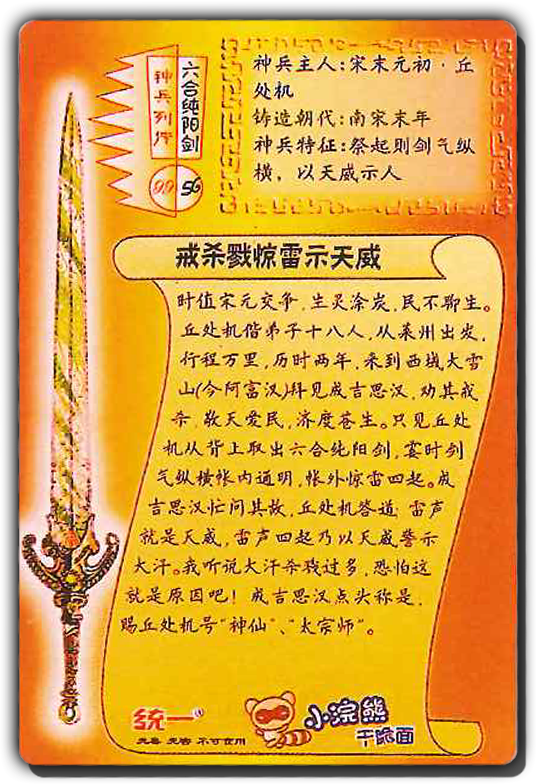 六合纯阳剑
神兵列传
99
56
神兵主人:宋末元初·丘
处机
铸造朝代:南宋末年
神兵特征:祭起则剑气纵
横，以天威示人
戒杀戮惊雷示天威
时值宋元交争,生灵涂炭,民不聊生。
丘处机偕弟子十八人,从莱州出发,
行程万里,历时两年,来到西域大雪
山(今阿富汗)拜见成吉思汗,劝其戒
杀,敬天爱民,济度苍生。只见丘处
机从背上取出六合纯阳剑,霎时剑
气纵横帐内通明,帐外惊雷四起。成
吉思汗忙问其故,丘处机答道:雷声
就是天威,雷声四起乃以天威警示
大汗。我听说大汗杀戮过多,恐怕这
就是原因吧！成吉思汗点头称是,
赐丘处机号“神仙”、“太宗师”。
统一®
无毒 无害 不可食用
小浣熊
干脆面